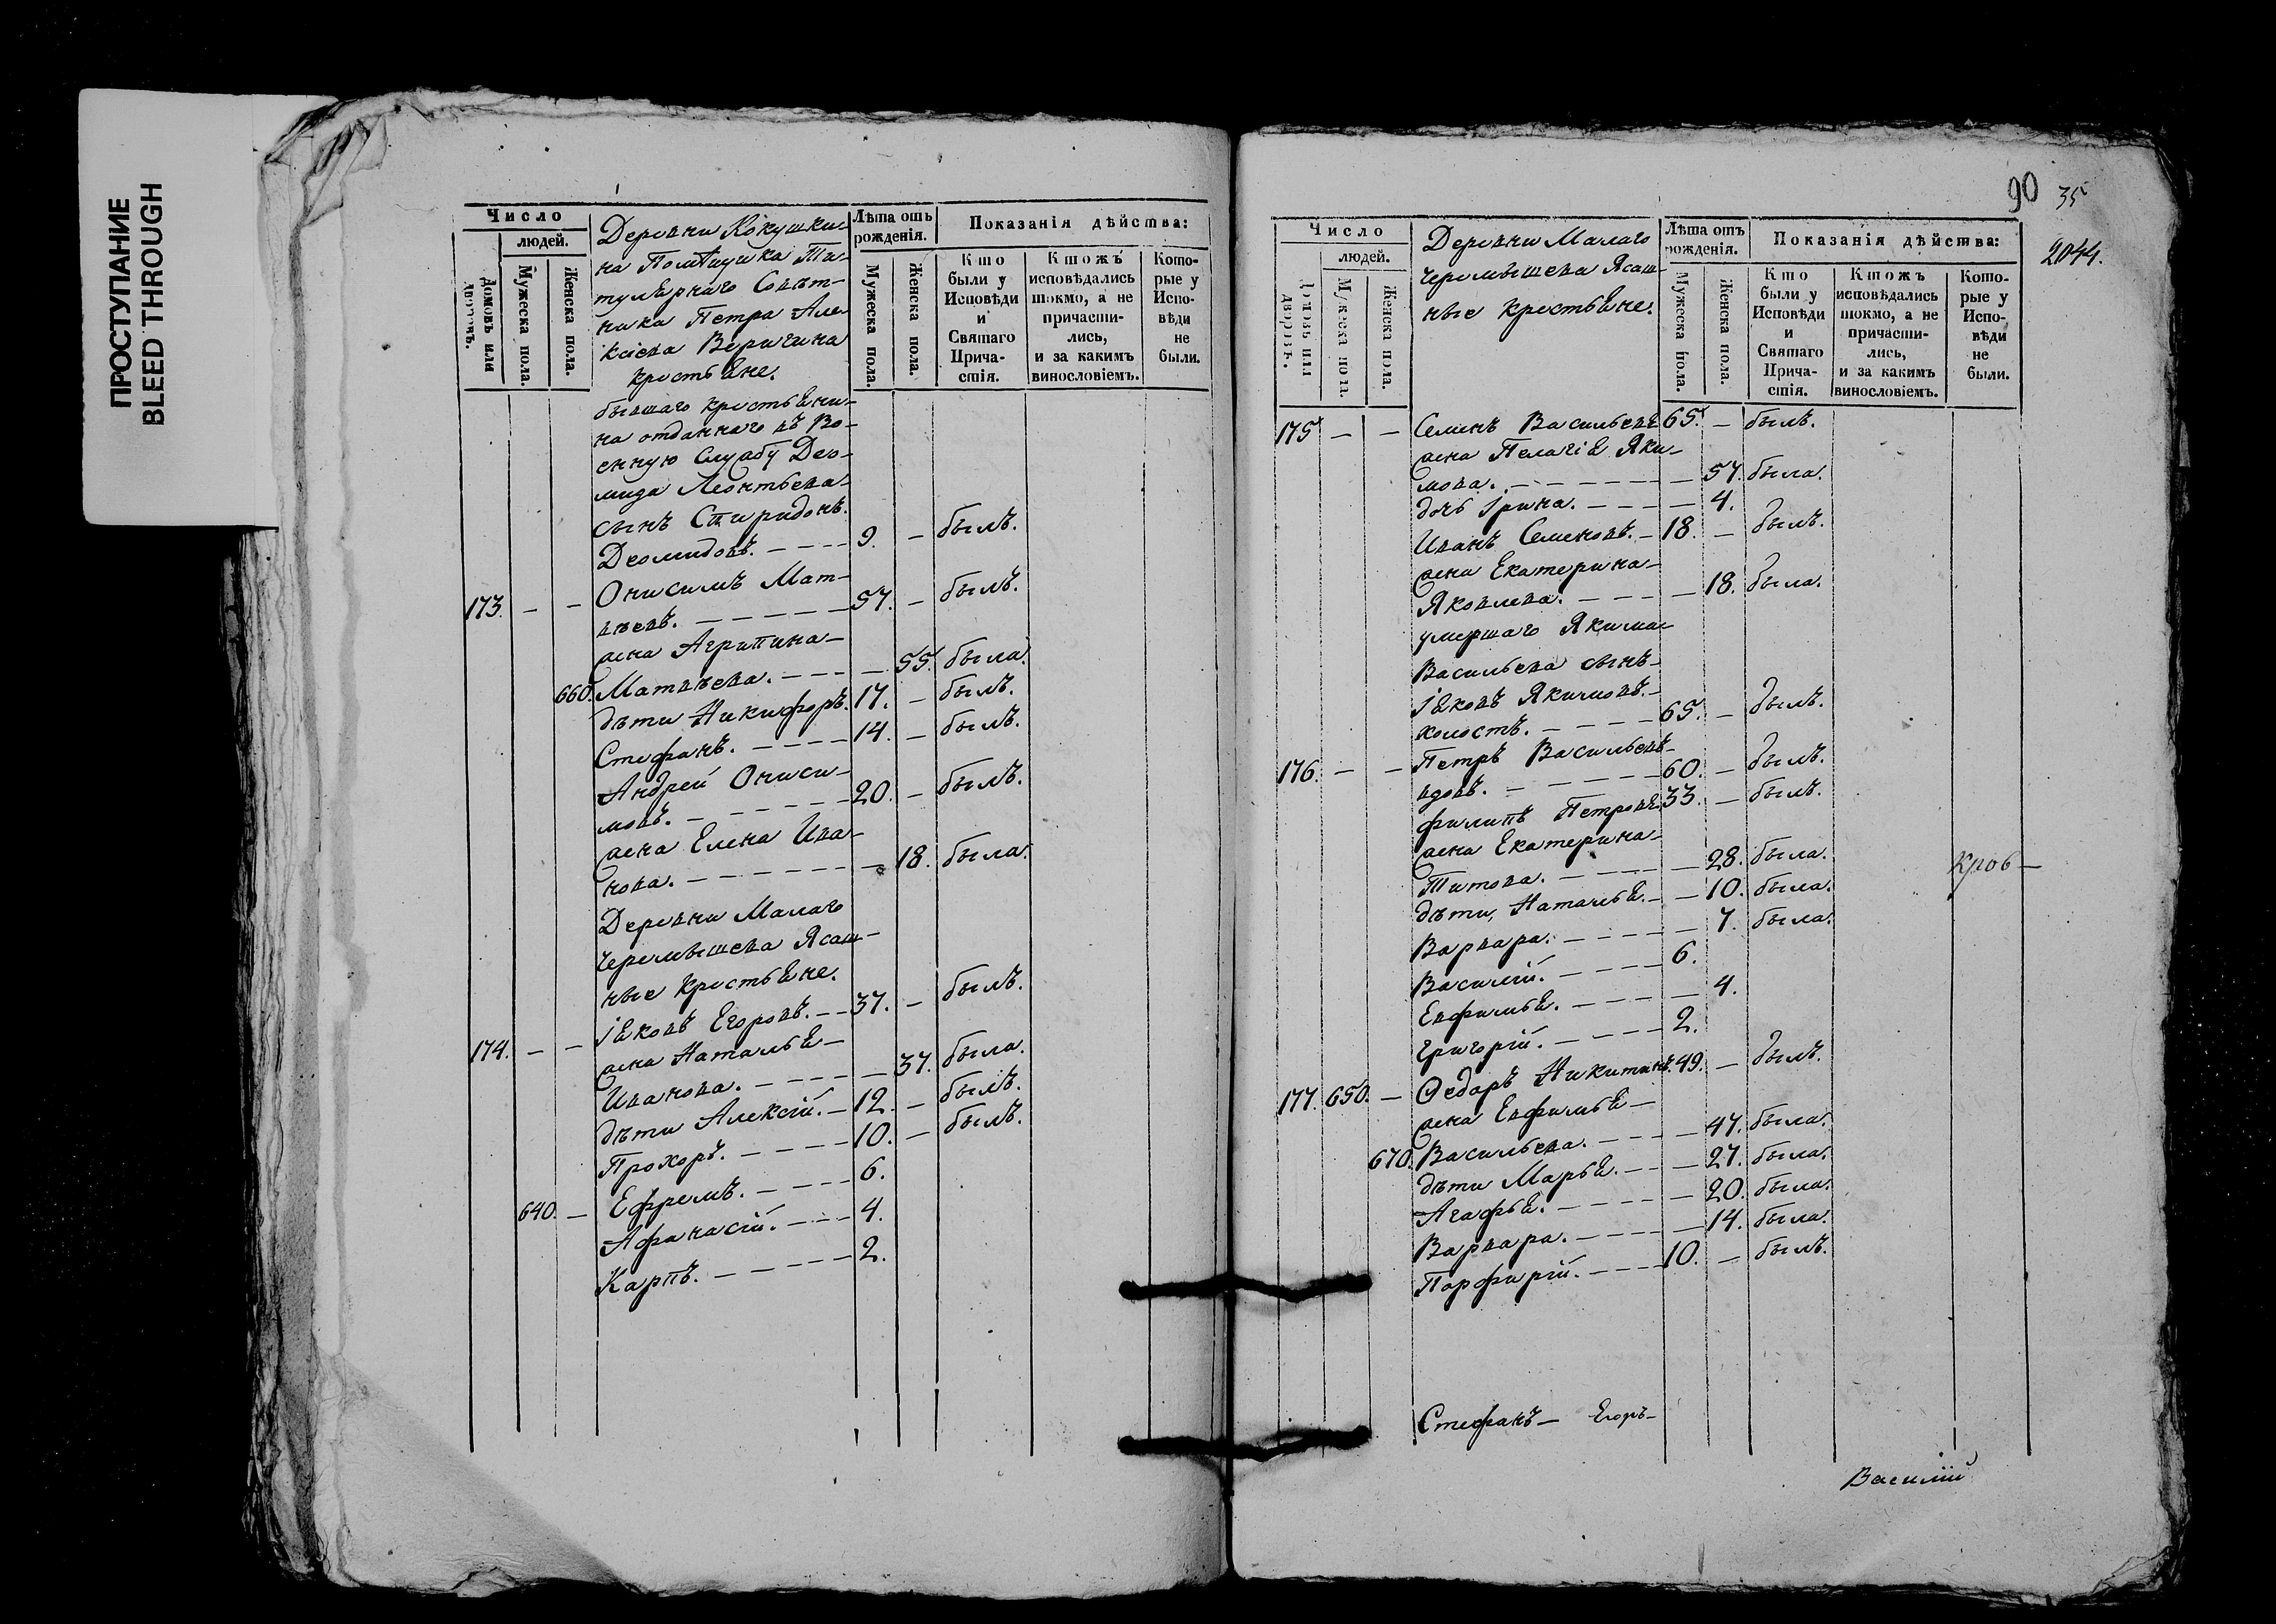 ПРОСТУПАНИЕ
BLEED THROUGH
Число
людей.
Домовъ или дворовъ.
Мужеска пола.
Женска пола.
Деревни Кокушки-
на Помѣщика Ти-
тулярнаго Совѣт-
ника Петра Але-
ксіева Веригина
крестьяне.
Лѣта отъ рожденія.
Мужеска пола.
Женска пола.
Показанія дѣйства:
Кто были у Исповѣди и Святаго Прича-стія.
Ктожъ исповѣдались токмо, а не причасти-лись, и за какимъ винословіемъ.
Кото-рые у Испо-вѣди не были.
бывшаго крестьяни-
на отданнаго въ Во-
енную Службу Део-
мида Леонтьева-
сынъ Спиридонъ
Деомидовъ. 9. – былъ.
173. – – Онисимъ Мат-
вѣевъ. 57. – былъ.
жена Агрипина-
660. Матвѣева. – 55. была.
дѣти Никифоръ. 17. – былъ.
Стефанъ. 14. – былъ.
Андрей Ониси-
мовъ. 20. – былъ.
жена Елена Ива-
нова. – 18. была.
Деревни Малаго
Черемышева Ясаш-
ные крестьяне.
174. – – Іяковъ Егоровъ. 37. – былъ.
жена Наталья-
Иванова. – 37. была.
дѣти Алексій. 12. – былъ.
Прохоръ. 10. – былъ.
Ефремъ. 6.
640. – Афанасій. 4.
Карпъ. 2.
90 35
2044.
Число
людей.
Домовъ или дворовъ.
Мужеска пола.
Женска пола.
Деревни Малаго
Черемышева Ясаш-
ные крестьяне.
Лѣта отъ рожденія.
Мужеска пола.
Женска пола.
Показанія дѣйства:
Кто были у Исповѣди и Святаго Прича-стія.
Ктожъ исповѣдались токмо, а не причасти-лись, и за какимъ винословіемъ.
Кото-рые у Испо-вѣди не были.
175 – – Семенъ Васильевъ 65. – былъ.
жена Пелагія Яки-
мова. – 57. была.
дочь Ірина. – 4.
Иванъ Семеновъ. 18. – былъ.
жена Екатерина-
Яковлева. – 18. была.
умершаго Якима-
Васильева сынъ-
Іяковъ Якимовъ.-
холостъ. 65. – былъ.
176. – – Петръ Васильевъ-
вдовъ. 60. – былъ.
Филипъ Петровъ. 33. – былъ.
жена Екатерина-
Титова. – 28. была.
дѣти, Наталья. – 10. была.
Варвара. – 7. была.
Василій. 6.
Евфимья. – 4.
Григорій. 2.
177. 650. – Ѳедоръ Никитинъ. 49. – былъ.
жена Евфимья-
670. Васильева. – 47. была.
дѣти Марья. – 27. была.
Агафья. – 20. была.
Варвара. – 14. была.
Порфирій. 10. – былъ.
Кров–
Стефанъ– Егоръ–
Василій